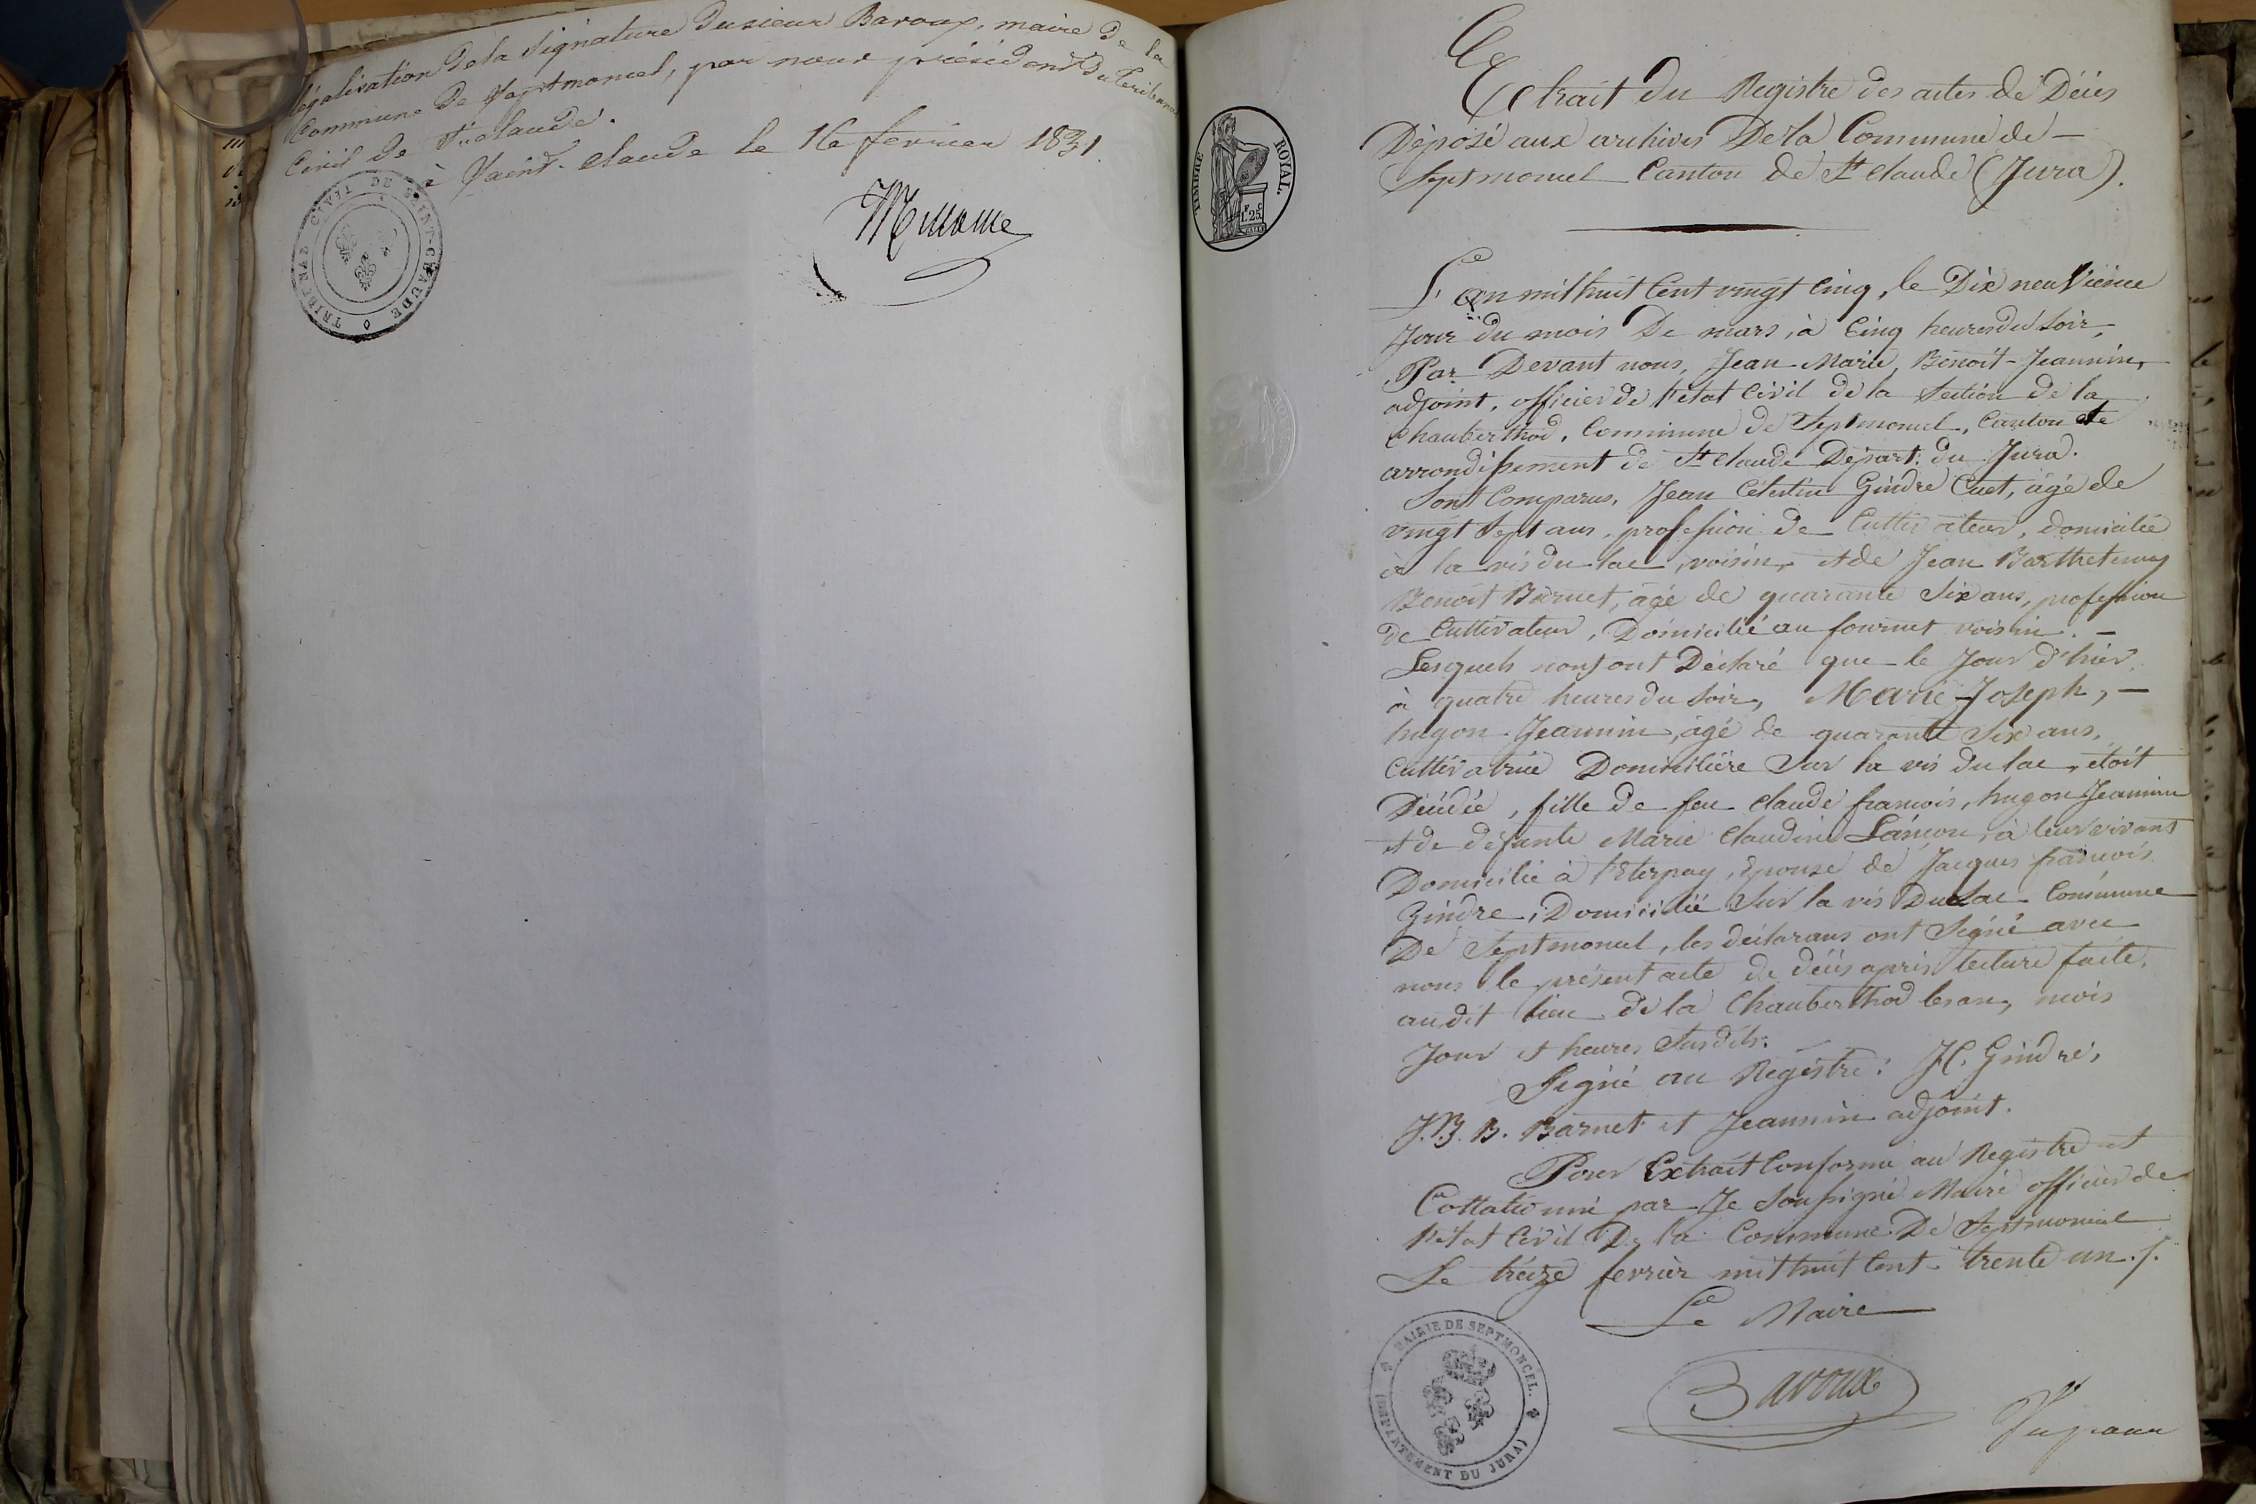 légalisation de la signature du sieur Bavoux, maire de la
Commune de Septmoncel, par nous président du tribunal
Civil de St. claude.
à Saint-claude le 16 fevrier 1831.
TRIBUNAL CIVIL DE SAINT-CLAUDE
TIMBRE ROYAL.
1F. 25C
Extrait du Registre des actes de Décès
Déposé aux archives De la Commune de —
Septmoncel Canton de St. Claude (Jura).
L'an mil huit Cent vingt Cinq, le Dix neuvieme
Jour du mois De mars, à Cinq heures du Soir,
Par Devant nous, Jean Marie, Benoit-Jeannin,
adjoint, officier de l'état Civil de la Section de la
Chauberthod, Commune de Septmoncel, Canton et
arrondissement de St. Claude Depart. du Jura.
Sont Comparus, Jean Célestin Gindre Cuet, âgé de
vingt Sept ans, profession de Cultivateur, domicilié
à la vis du lac, voisin, et de Jean Barthelemy
Benoit Barnet, âgé de quarante Six ans, profession
de Cultivateur, Domicilié au fournet voisin. —
Lesquels nous ont Déclaré que le Jour d'hier,
à quatre heures du Soir, Marie-Joseph, —
hugon Jeannin, âgé de quarante Six ans,
Cultivatrice Domicilière Sur la vis du lac, étoit
Décédée, fille de feu Claude francois, hugon Jeannin
et de défunte Marie Claudine Lançon, à leur vivant
Domicilié à l'Eterpay, Epouse de Jacques francois
Gindre, Domicilié Sur la vis Du Lac Commune
De Septmoncel, les déclarans ont Signé avec
nous le présent acte de décès après lecture faite,
au dit lieu de la Chauberthod les an, mois
Jour et heures Susdits.
Signé au Registre: J.C. Gindre,
J.B. B. Barnet et Jeannin adjoint.
Pour Extrait Conforme au Registre et
Collationné par Je Soussigné Maire officier de
l'état Civil De la Commune De Septmoncel
Le treize fevrier mil huit Cent trente un./.
Le Maire
MAIRIE DE SEPTMONCEL.
(DÉPARTEMENT DU JURA)
Bavoux